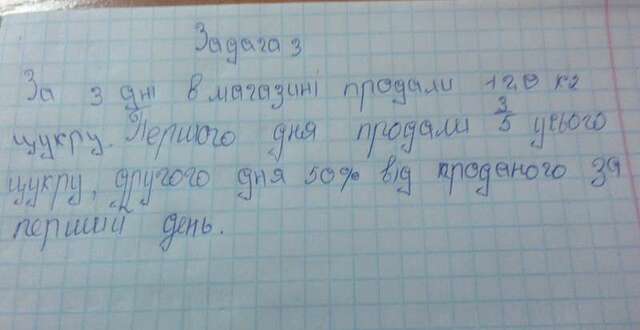 Задача 3
За 3 дні в магазині продали 120 кг
цукру. Першого дня продали 3/5 усього
цукру, другого дня 50% від проданого за
перший день.